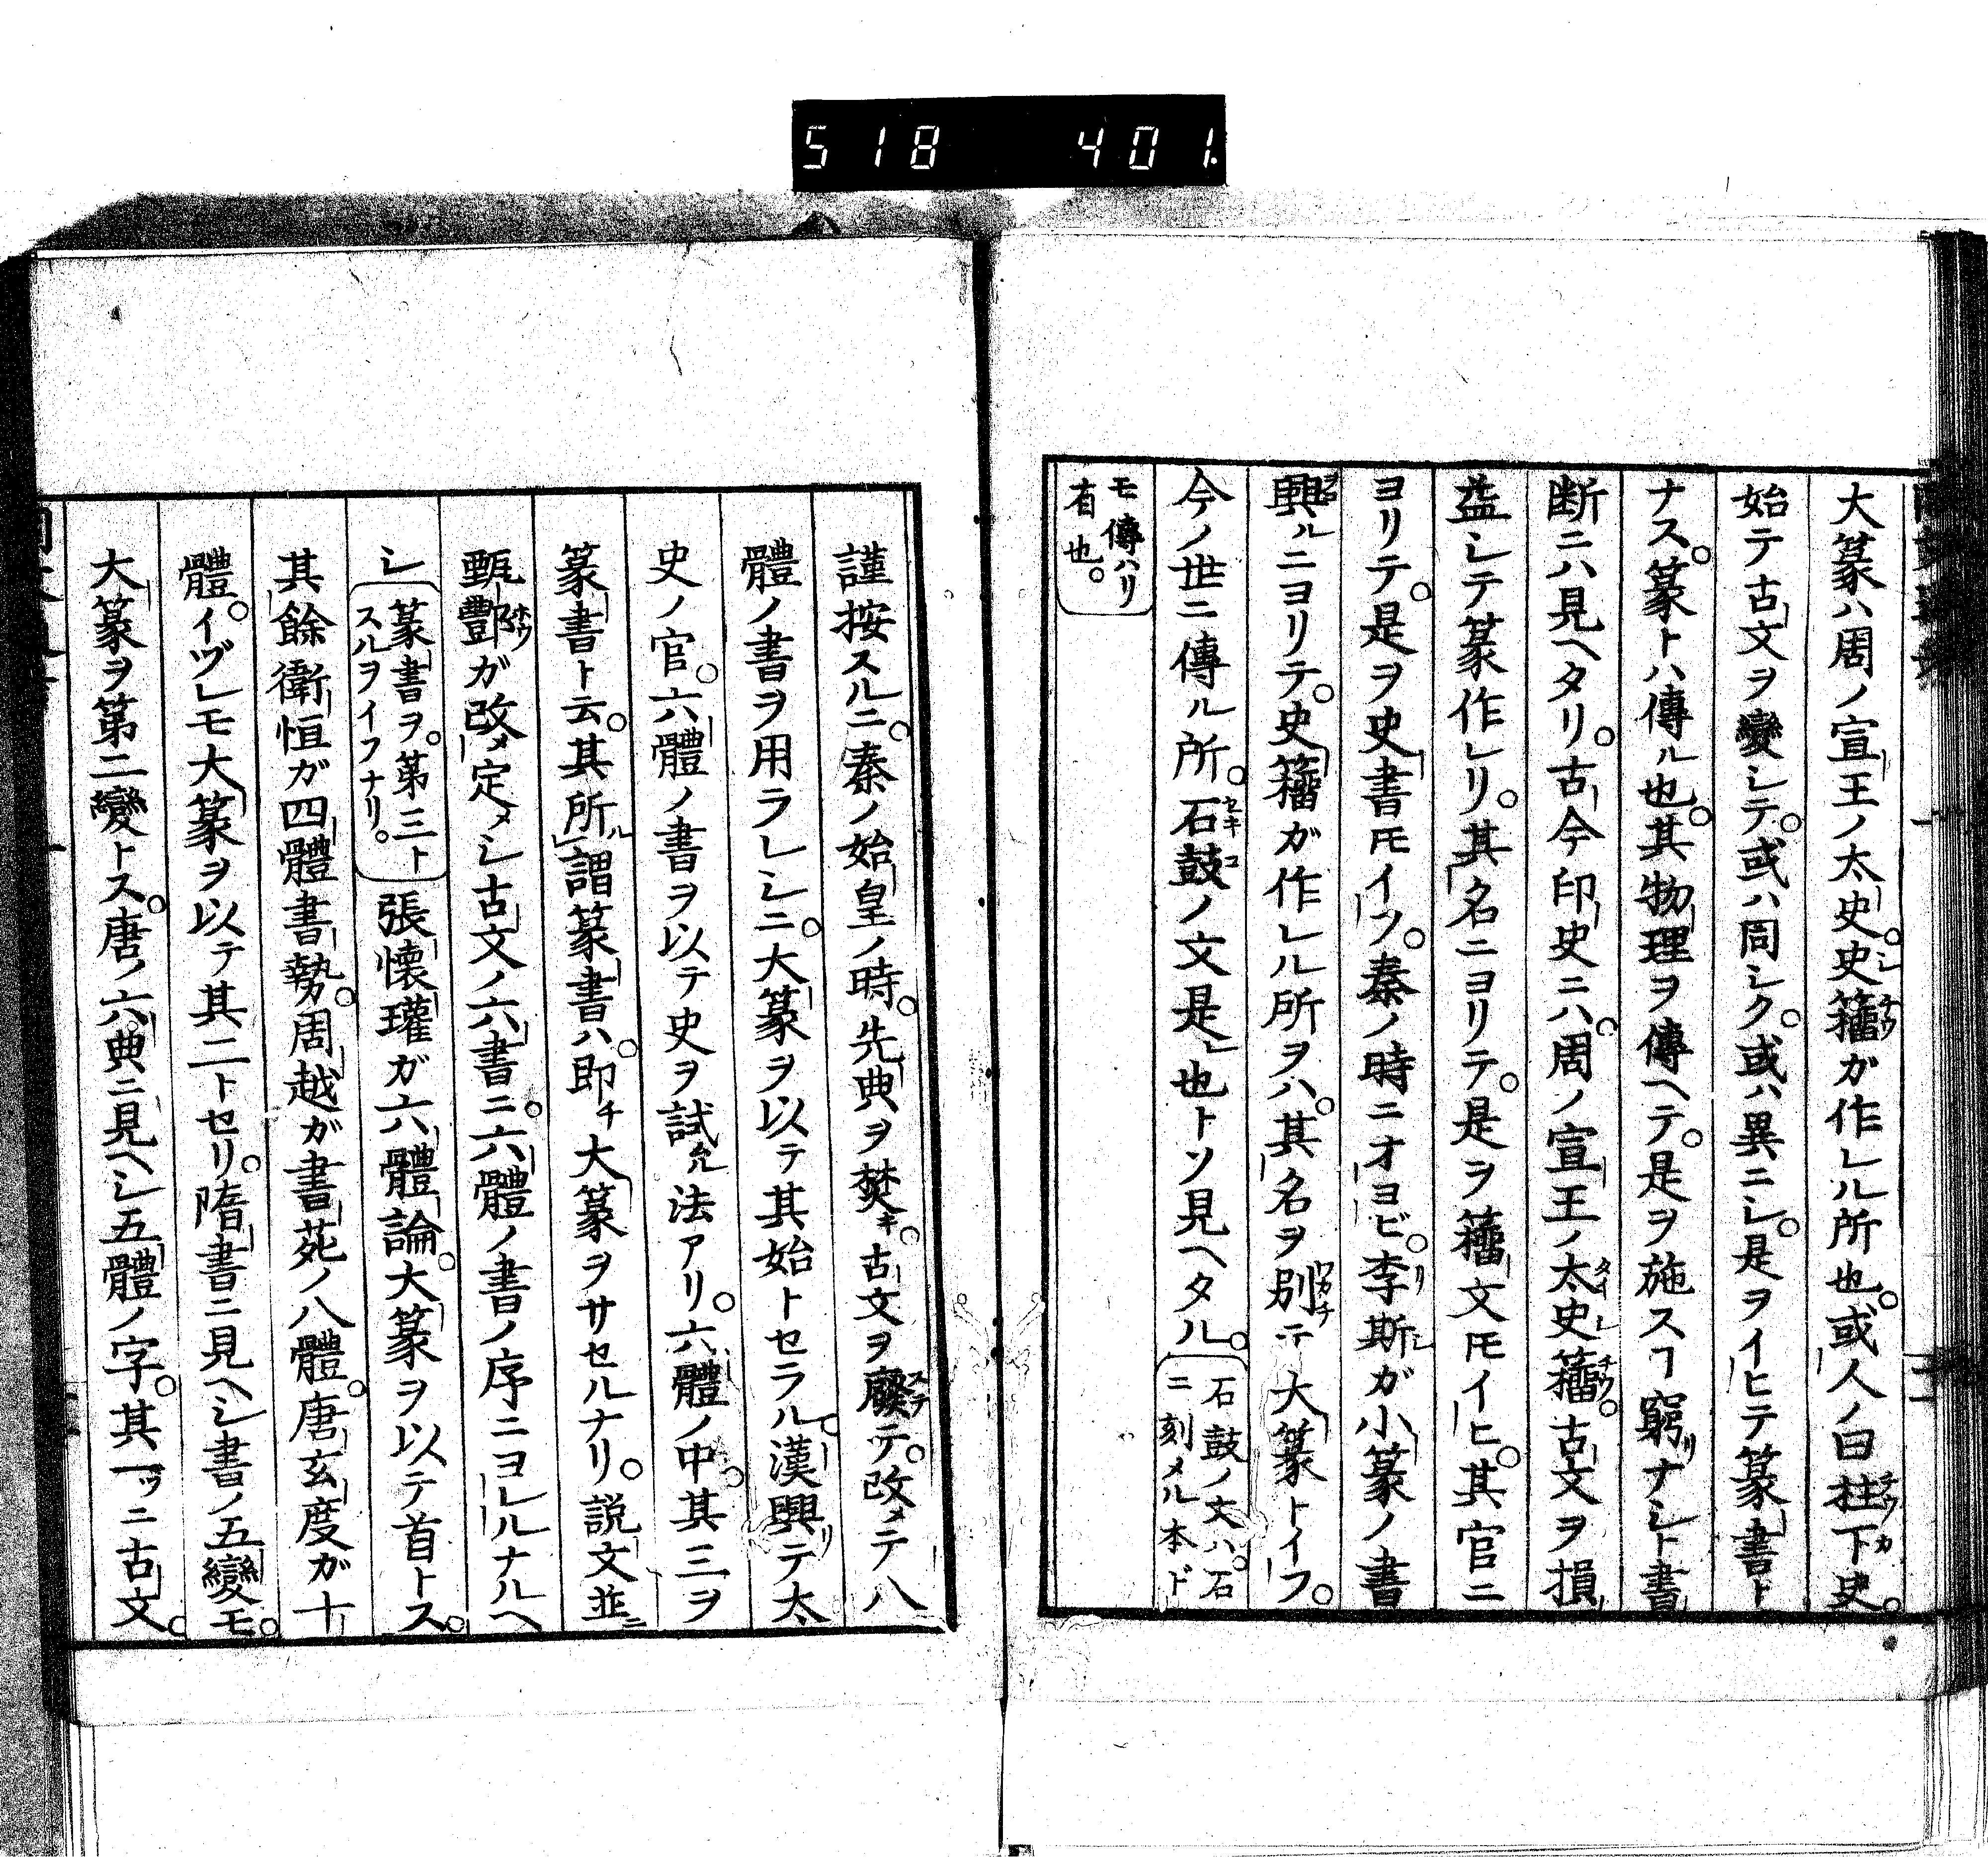 518 401.
大篆ハ周ノ宣王ノ太史。史籀ガ作レル所也。或人ノ曰柱下史。
始テ古文ヲ變シテ。或ハ同シク。或ハ異ニシ。是ヲイヒテ篆書ト
ナス。篆トハ傳ル也。其物理ヲ傳ヘテ。是ヲ施スヿ窮リナシト書
断ニハ見ヘタリ。古今印史ニハ。周ノ宣王ノ太史籀。古文ヲ損
益シテ篆作レリ。其名ニヨリテ。是ヲ籀文モイヒ。其官ニ
ヨリテ。是ヲ史書モイフ。秦ノ時ニオヨビ。李斯ガ小篆ノ書
興ルニヨリテ。史籀ガ作レル所ヲハ。其名ヲ別テ大篆トイフ。
今ノ世ニ傳ル所。石鼓ノ文是也トソ見ヘタル。石鼓ノ文ハ。石
ニ刻メル本ド
モ傳ハリ
有也。
謹按スルニ。秦ノ始皇ノ時。先典ヲ焚キ。古文ヲ廢テ。改メテ八
體ノ書ヲ用ラレシニ。大篆ヲ以テ其始トセラル。漢興リテ太
史ノ官。六體ノ書ヲ以テ史ヲ試ル法アリ。六體ノ中。其三ヲ
篆書ト云。其所謂篆書ハ。即チ大篆ヲサセルナリ。説文並ニ
甄酆ガ改メ定メシ古文ノ六書ニ。六體ノ書ノ序ニヨレルナルヘ
シ篆書ヲ。第三ト
スルヲイフナリ。
張懷瓘ガ六體論。大篆ヲ以テ首トス。
其餘衛恒ガ四體書勢。周越ガ書苑ノ八體。唐玄度ガ十
體。イヅレモ大篆ヲ以テ其二トセリ。隋書ニ見ヘシ書ノ五變モ。
大篆ヲ第二變トス。唐ノ六典ニ見ヘシ五體ノ字。其一ツニ古文。